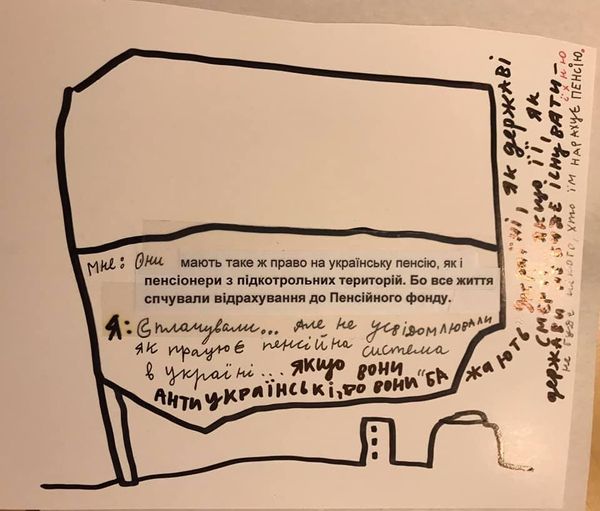 Мне: Они мають таке ж право на українську пенсію, як і
пенсіонери з підкотрольних територій. Бо все життя
спчували відрахування до Пенсійного фонду.
Я: Сплачували... Але не усвідомлювали
як працює пенсійна система
в україні... якщо вони
антиукраїнські, то вони "ба
жають україні, як державі
смерті", а якщо її, як
держави не буде існувати –
не буде нікого, хто їм нарахує їхню пенсію.